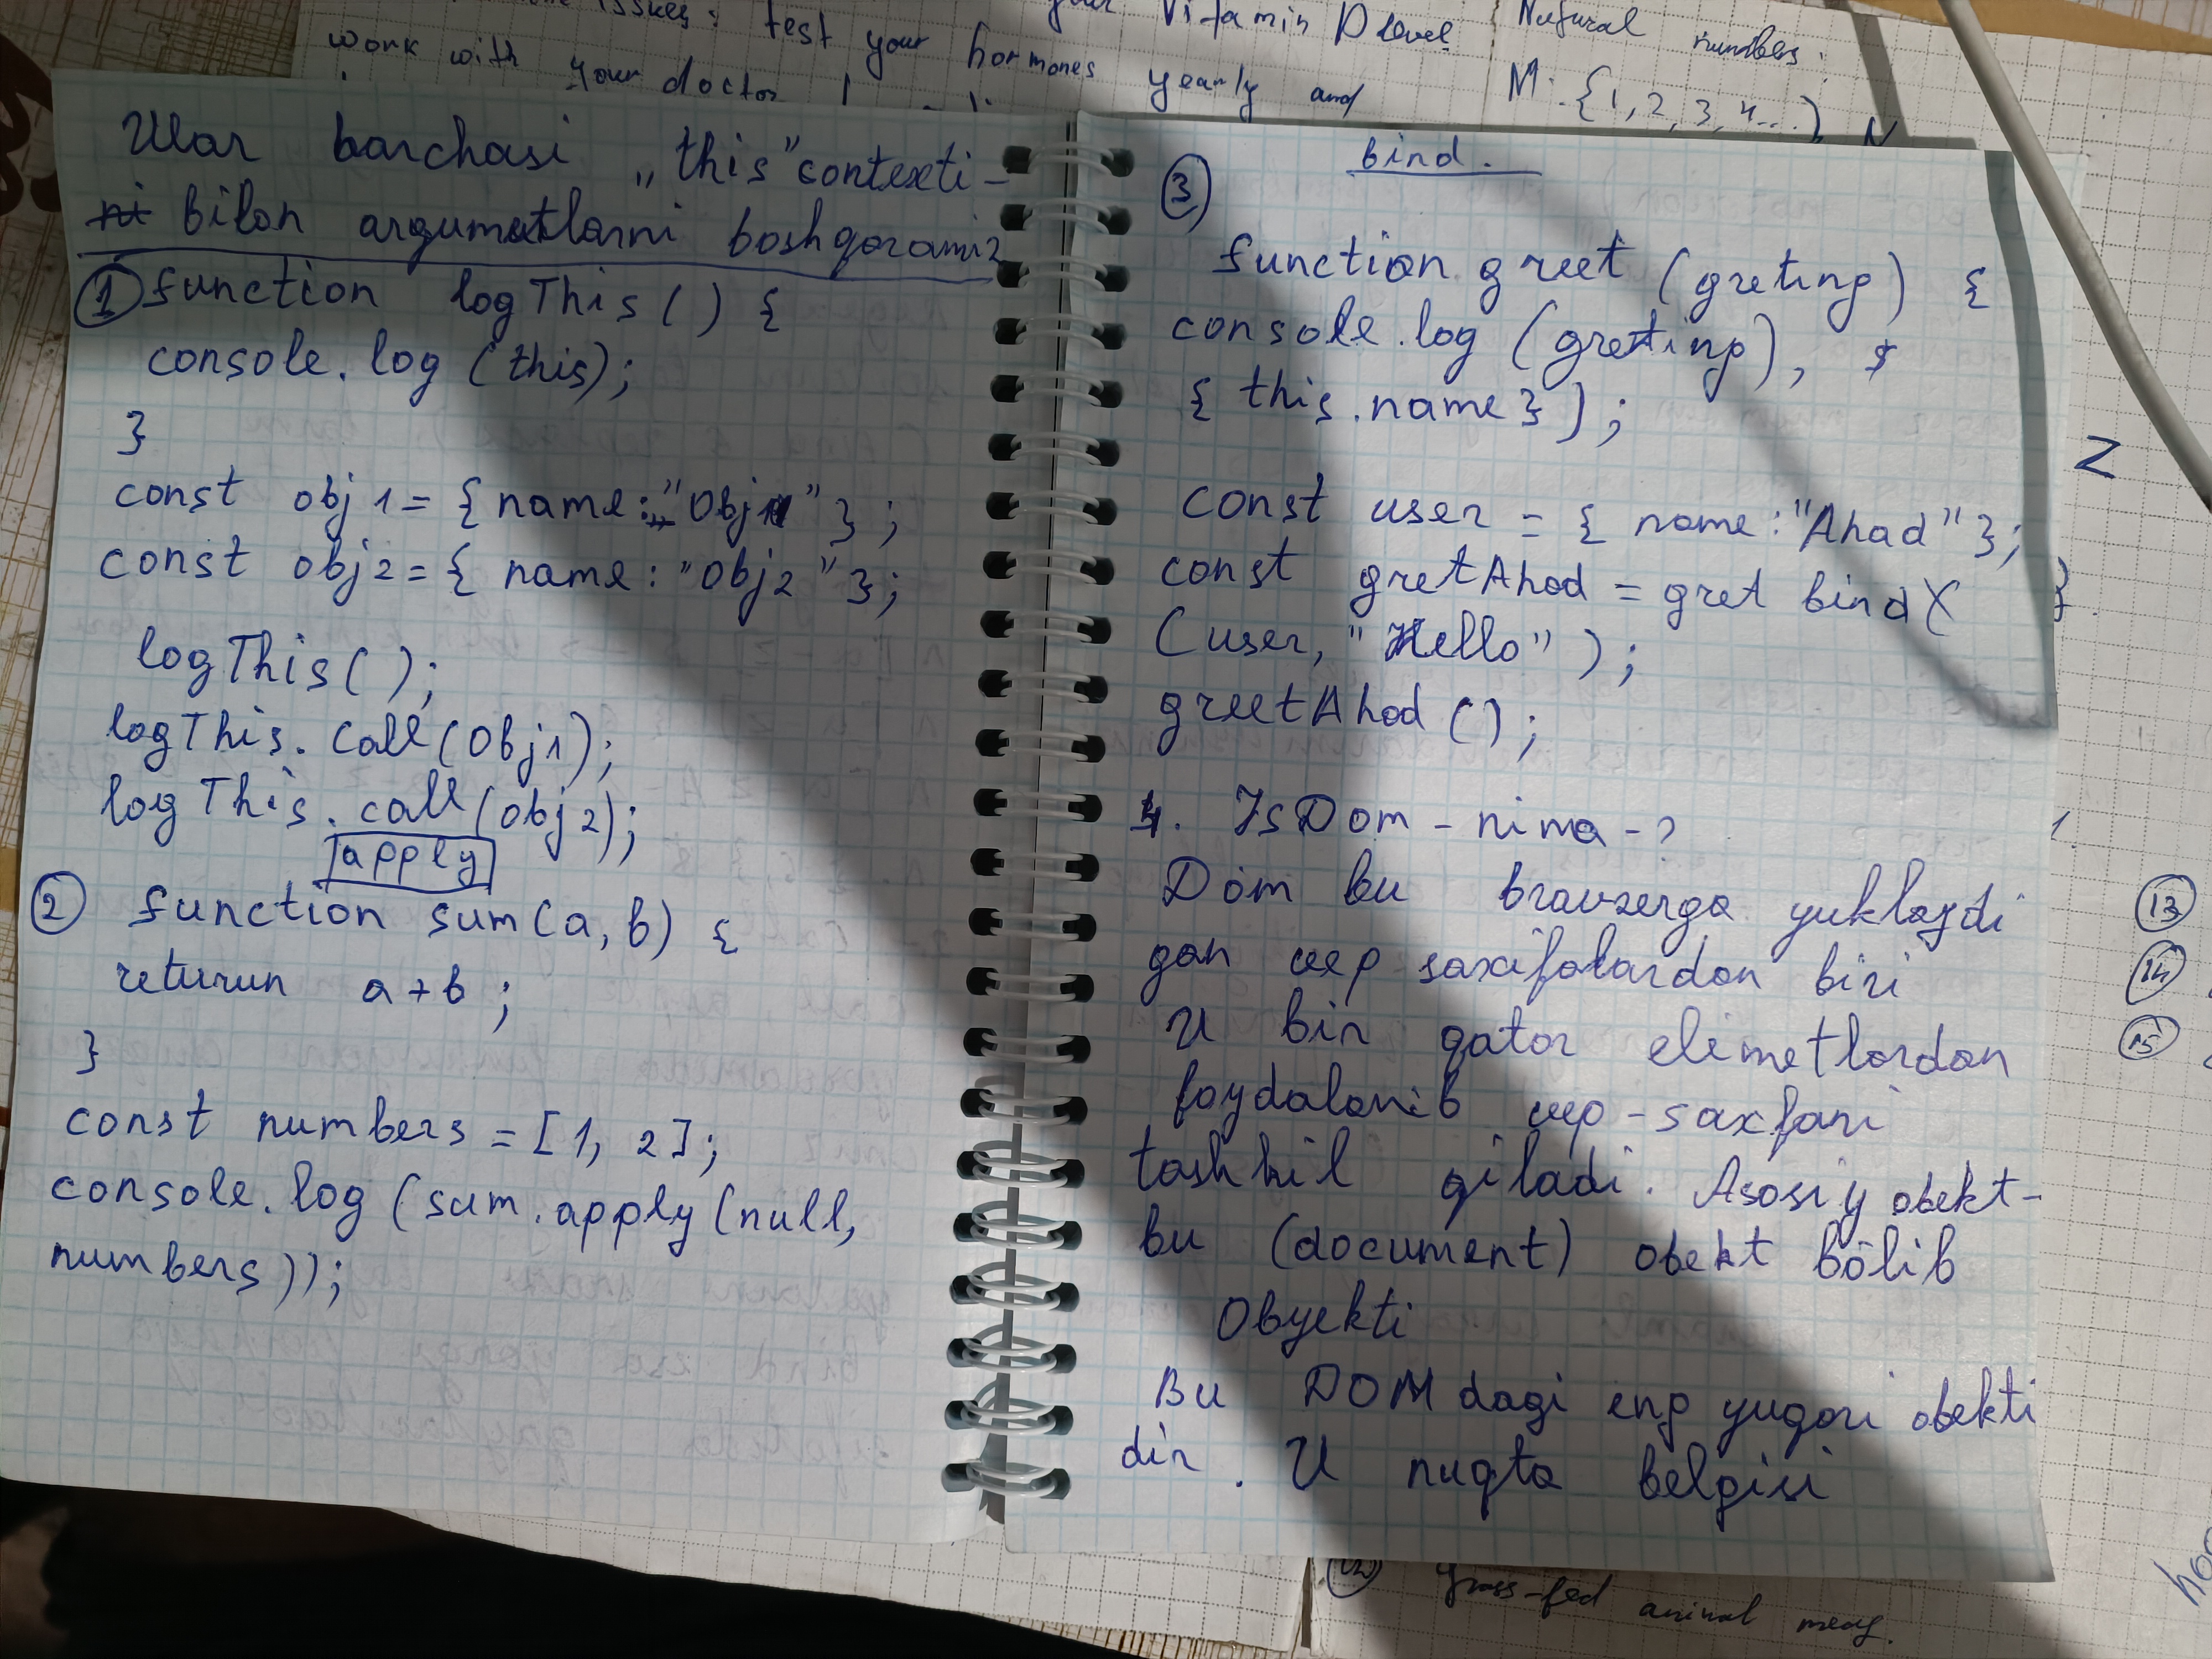 issues: test your hormones yearly and
work with your doctor
your Vitamin D level
Natural numbers:
N: {1, 2, 3, 4...} N
Ular barchasi "this" contexti-
bilan argumetlarni boshqoramiz
1 function logThis() {
console.log (this);
}
const obj1 = { name: "Obj1" };
const obj2 = { name: "Obj2" };
logThis();
logThis.call(Obj1);
logThis.call(obj2);
apply
2 function sum(a, b) {
returun a+b;
}
const numbers = [1, 2];
console.log (sum.apply(null,
numbers));
bind.
3
function greet (greting) {
console.log (gretting), $
{ this.name});
const user = { name: "Ahad" };
const gretAhod = gret bind(
(user, "Hello");
greetAhod ();
4. JsDom - nima - ?
Dom bu bravzerga yuklaydi
gan wep saxifalardan biri
U bir qator elimetlardan
foydalanib wep-saxfani
tashkil qiladi. Asosiy obekt-
bu (document) obekt bõlib
Obyekti
Bu DOM dagi eng yuqori obekti
dir. U nuqta belgisi
Z
13
14
15
grass-fed animal